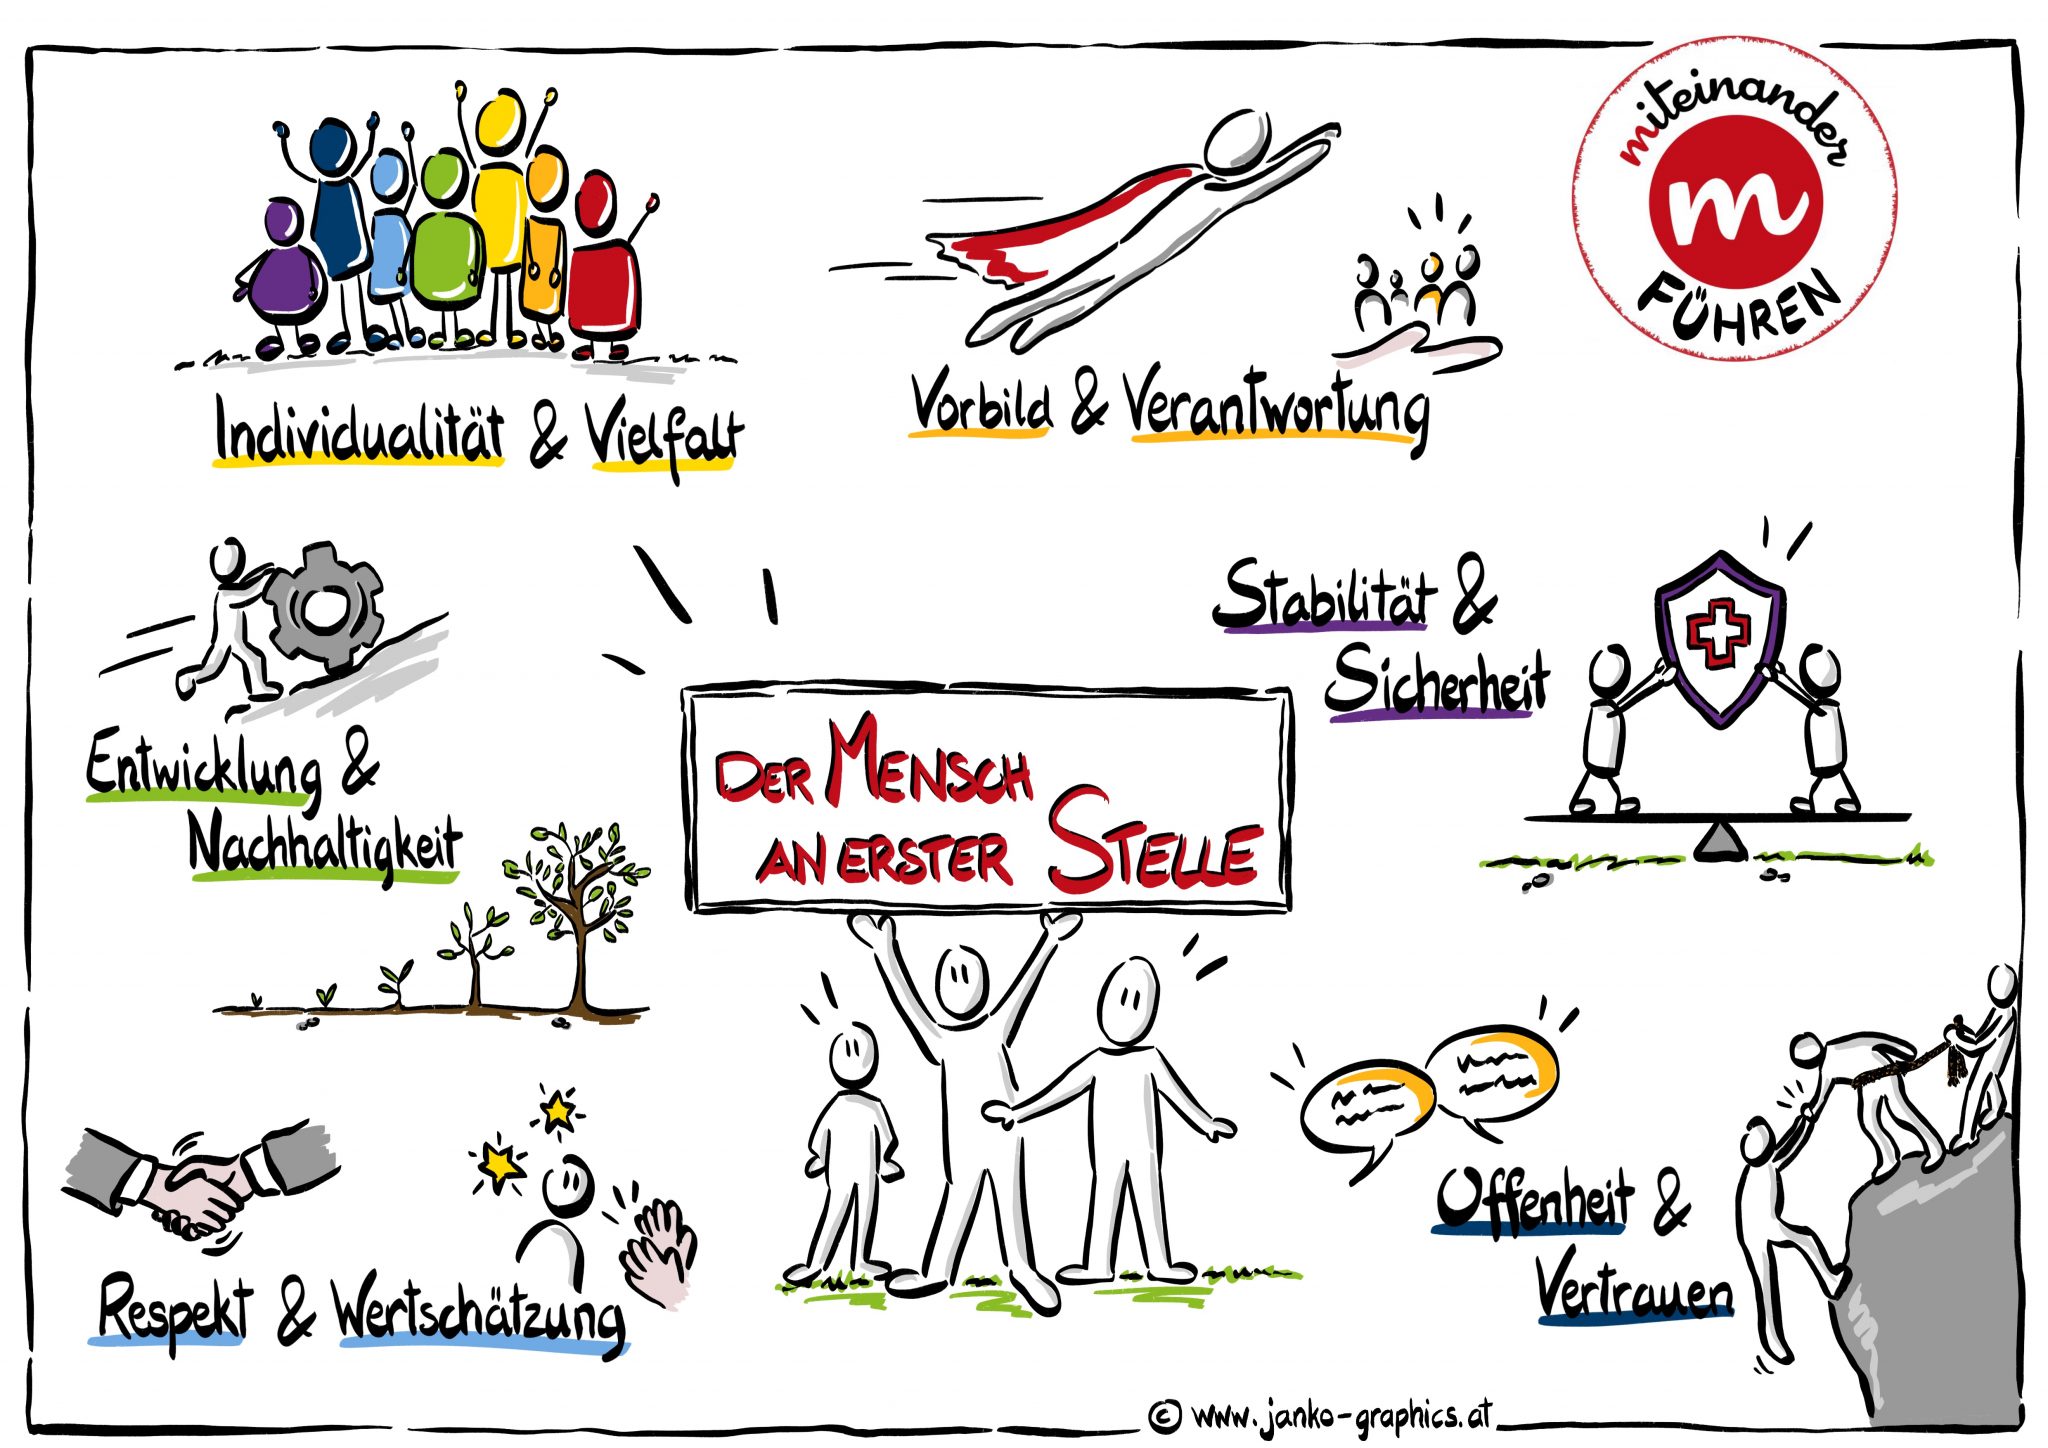 miteinander
m
FÜHREN
Individualität & Vielfalt
Vorbild & Verantwortung
Stabilität &
Sicherheit
Entwicklung &
Nachhaltigkeit
DER MENSCH
AN ERSTER STELLE
Offenheit &
Vertrauen
Respekt & Wertschätzung
© www.janko-graphics.at